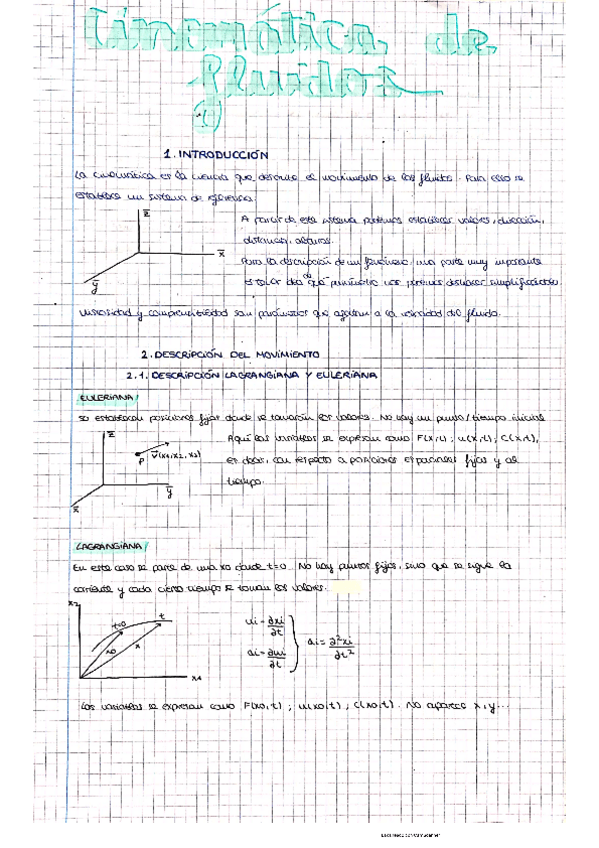 Cinemática de
fluidos
1. INTRODUCCIÓN
La cinemática es la ciencia que describe el movimiento de los fluidos. Para ello se
establece un sistema de referencia.
z
A partir de este sistema podemos establecer valores, dirección,
distancia, alturas.
x
Para la descripción de un fenómeno, una parte muy importante
es saber de qué parámetro nos podemos deshacer simplificándolo.
y
Viscosidad y compresibilidad son parámetros que a la velocidad del fluido.
2. DESCRIPCIÓN DEL MOVIMIENTO
2.1. DESCRIPCIÓN LAGRANGIANA Y EULERIANA
EULERIANA/
Se establecen posiciones fijas donde se tomarán los valores. No hay un punto/tiempo inicial
z
Aquí las variables se expresan como F(x,t); u(x,t); C(x,t),
P v(x1,x2,x3)
es decir, con respecto a posiciones espaciales fijas y al
y
tiempo.
x
LAGRANGIANA/
En este caso se parte de una x0 donde t=0. No hay puntos fijos, sino que se sigue la
corriente y cada cierto tiempo se toman los valores.
x2
t=0 t
x0 x
x1
ui = ∂xi/∂t
ai = ∂ui/∂t
ai = ∂²xi/∂t²
Las variables se expresan como F(x0,t); u(x0,t); C(x0,t). No aparece x,y...